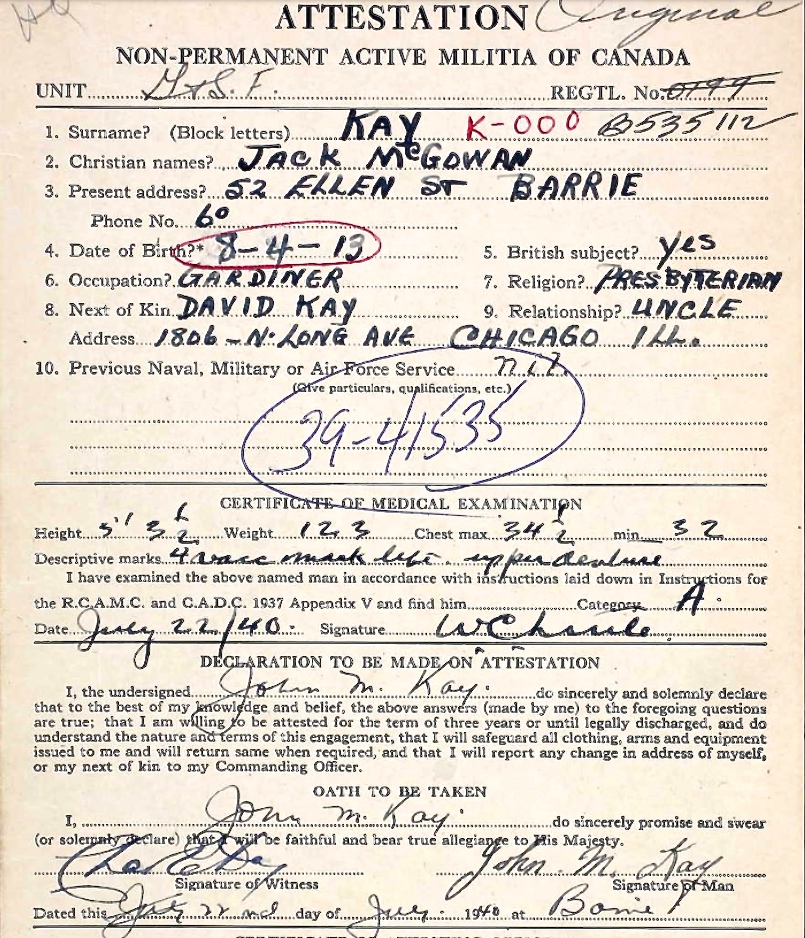 ATTESTATION Original
NON-PERMANENT ACTIVE MILITIA OF CANADA
UNIT G & S. F. REGTL. No. 0194
1. Surname? (Block letters) KAY K-000 B535112
2. Christian names? JACK McGOWAN
3. Present address? 52 ELLEN ST BARRIE
Phone No. 60
4. Date of Birth?* 8-4-13 5. British subject? yes
6. Occupation? GARDINER 7. Religion? PRESBYTERIAN
8. Next of Kin DAVID KAY 9. Relationship? UNCLE
Address 1806 - N. LONG AVE CHICAGO ILL.
10. Previous Naval, Military or Air Force Service nil.
(Give particulars, qualifications, etc.)
39-41535
CERTIFICATE OF MEDICAL EXAMINATION
Height 5' 3 1/2 Weight 123 Chest max. 34 1/2 min. 32
Descriptive marks 4 vacc mark left. upper denture
I have examined the above named man in accordance with instructions laid down in Instructions for
the R.C.A.M.C. and C.A.D.C. 1937 Appendix V and find him Category A.
Date July 22/40. Signature
DECLARATION TO BE MADE ON ATTESTATION
I, the undersigned John M. Kay. do sincerely and solemnly declare
that to the best of my knowledge and belief, the above answers (made by me) to the foregoing questions
are true; that I am willing to be attested for the term of three years or until legally discharged, and do
understand the nature and terms of this engagement, that I will safeguard all clothing, arms and equipment
issued to me and will return same when required, and that I will report any change in address of myself,
or my next of kin to my Commanding Officer.
OATH TO BE TAKEN
I, John M. Kay. do sincerely promise and swear
(or solemnly declare) that I will be faithful and bear true allegiance to His Majesty.
John M. Kay
Signature of Witness Signature of Man
Dated this 22nd day of July. 1940 at Barrie